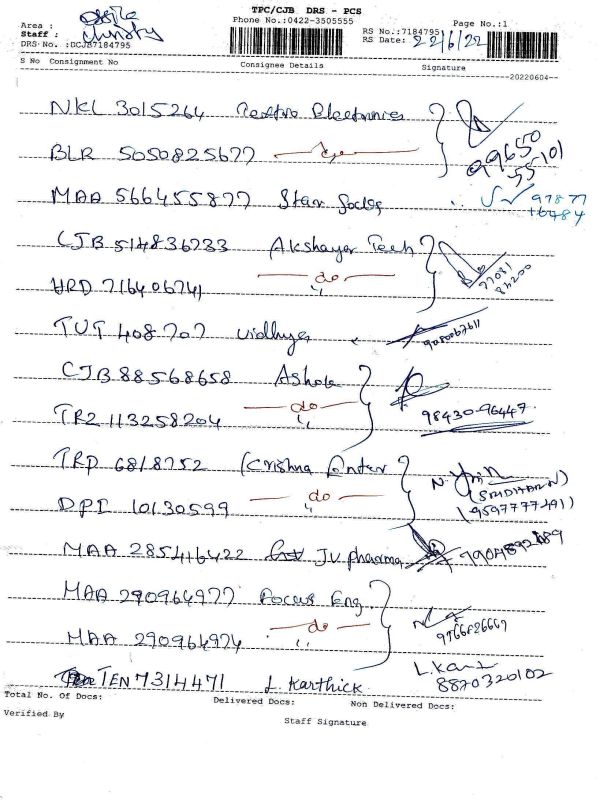 TPC/CJB DRS - PCS
Area : Office
Phone No.:0422-3505555
Page No.:1
Staff : christy
RS No.:7184795
DRS No. :DCJB7184795
RS Date: 22/6/22
S No Consignment No Consignee Details Signature
20220604--
NKL 3015264 Electronics
99650 55101
BLR 5050825677
MAA 566455877 Star
97877 76484
CJB 514836733 Akshaya Tech
HRD 716406741 — do —
77081 84200
TUT 408707 Vidhya
CJB 88568658 Ashok
TRZ 113258204 — do —
98430-96447
TRP 6818752 Krishna Enter
N.
(SRIDHARN)
(9597777491)
DPI 10130599 — do —
MAA 285416422 JV pharma
MAA 290964977 Focus Eng.
MAA 290964974 — do —
TEN 7314471 L. Karthick
L.Kar
8870320102
Total No. Of Docs: Delivered Docs: Non Delivered Docs:
Verified By
Staff Signature